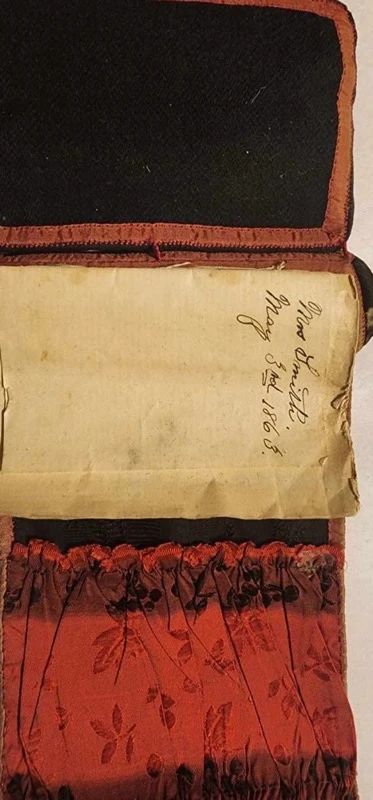 Mrs Smith.
May 3rd 1863.